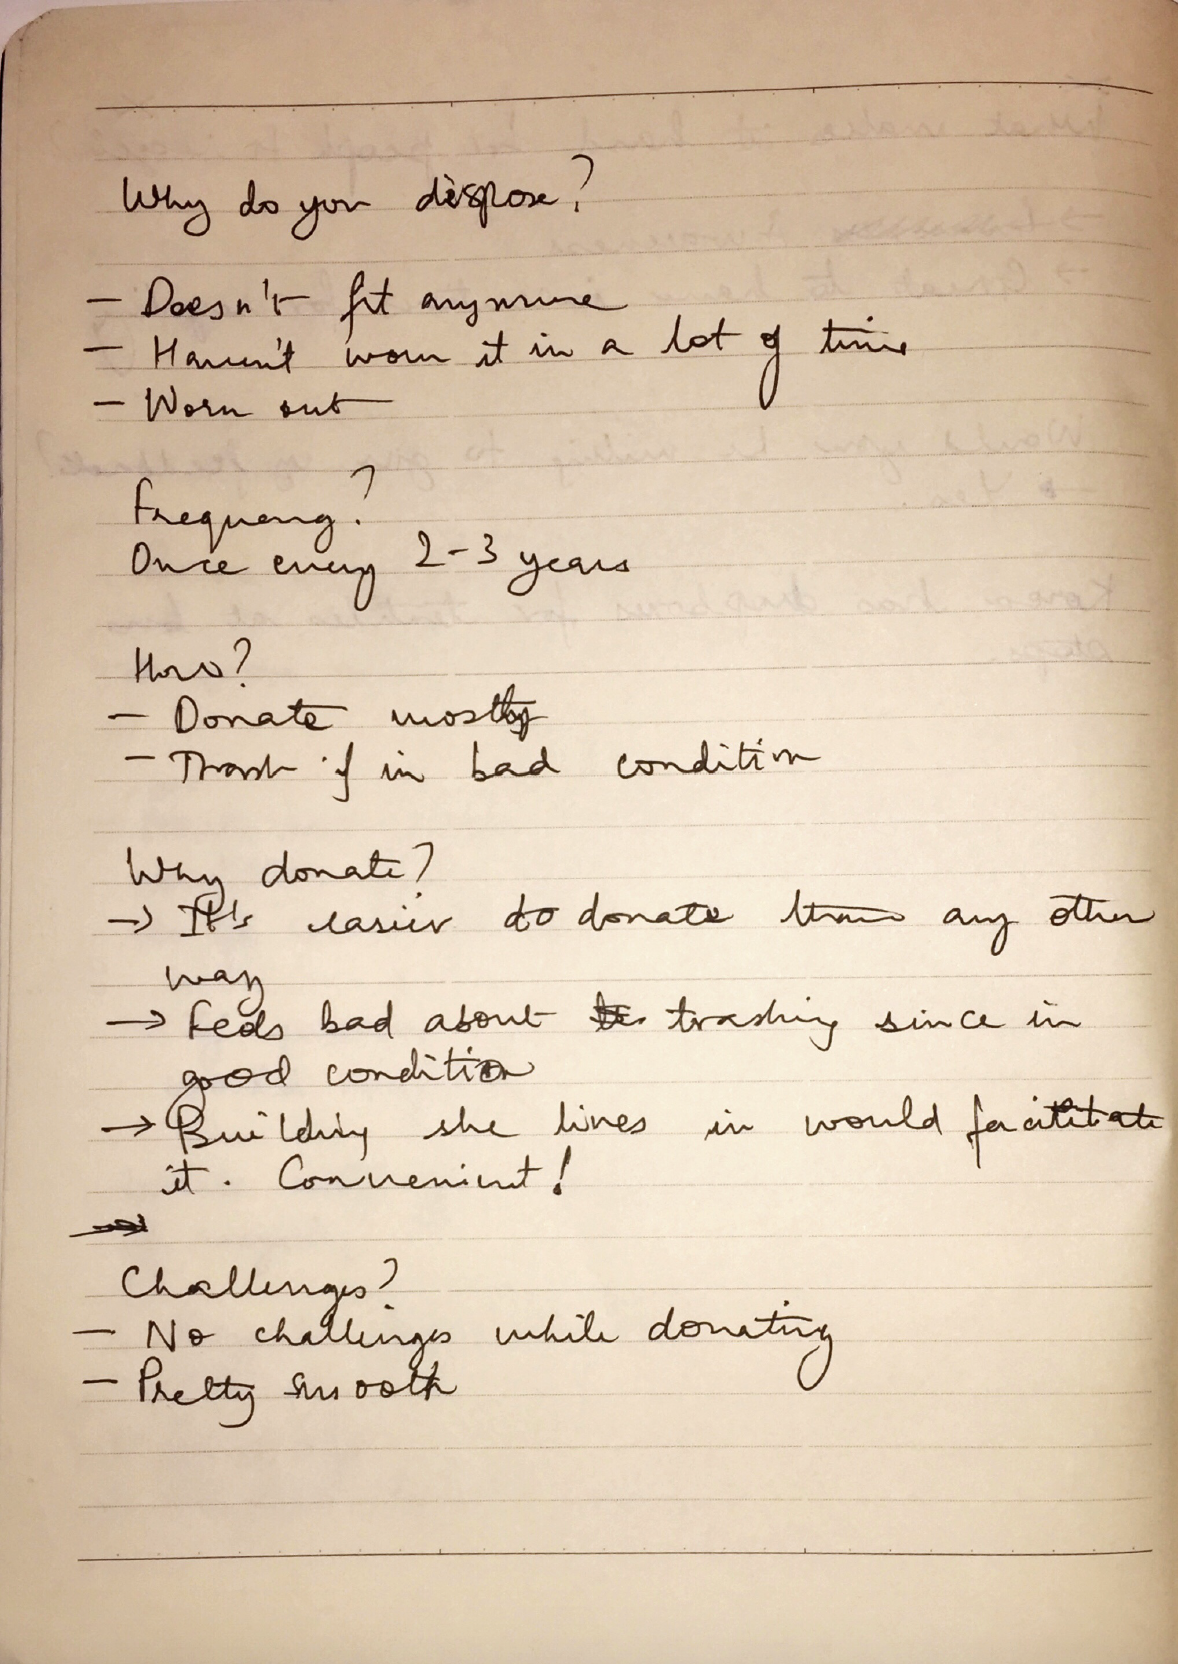 Why do you dispose?
- Doesn't fit anymore
- Haven't worn it in a lot of time
- Worn out
Frequency?
Once every 2-3 years
How?
- Donate mostly
- Trash if in bad condition
Why donate?
→ It's easier to donate than any other
way
→ Feels bad about trashing since in
good condition
→ Building she lives in would facilitate
it. Convenient!
Challenges?
- No challenges while donating
- Pretty smooth